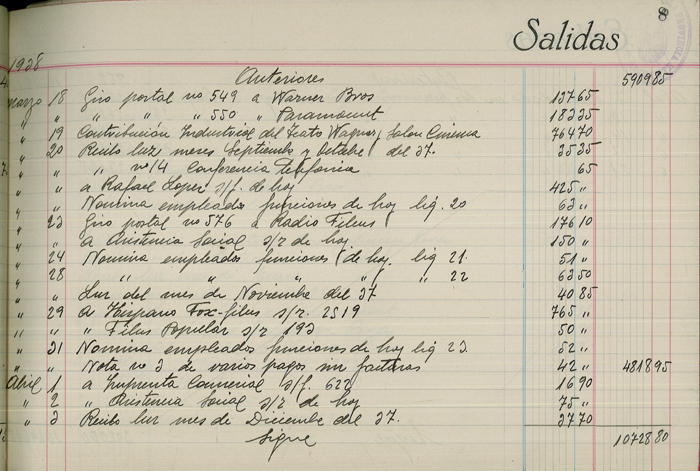 8
Salidas
1938
Anteriores 590985
Marzo 18 Giro postal nº 549 a Warner Bros 13765
" " " " " 550 " Paramount 18335
" 19 Contribución Industrial del Teatro Wagner y Salon Cinema 76470
" 20 Recibo luz meses Septiembre y Octubre del 37. 3535
" " " nº 14 Conferencia Telefonica 65
" " a Rafael Lopez s/f. de hoy 425 "
" " Nomina empleados funciones de hoy liq. 20 63 "
" 23 Giro postal nº 576 a Radio Films 17610
" " a Asistencia Social s/r de hoy 150 "
" 24 Nomina empleados funciones de hoy liq 21. 51 "
" 28 " " " " " 22 6350
" " Luz del mes de Noviembre del 37 4085
" 29 a Hispano Fox-films s/r. 2519 765 "
" " " Films Popular s/r 193 50 "
" 31 Nomina empleados funciones de hoy liq 23. 52 "
" " Nota nº 3 de varios pagos sin facturas 42 " 481895
Abril 1 a Imprenta Comercial s/f. 622 1690
" 2 " Asistencia Social s/r de hoy 75 "
" 3 Recibo luz mes de Diciembre del 37. 3770
Sigue 1072880